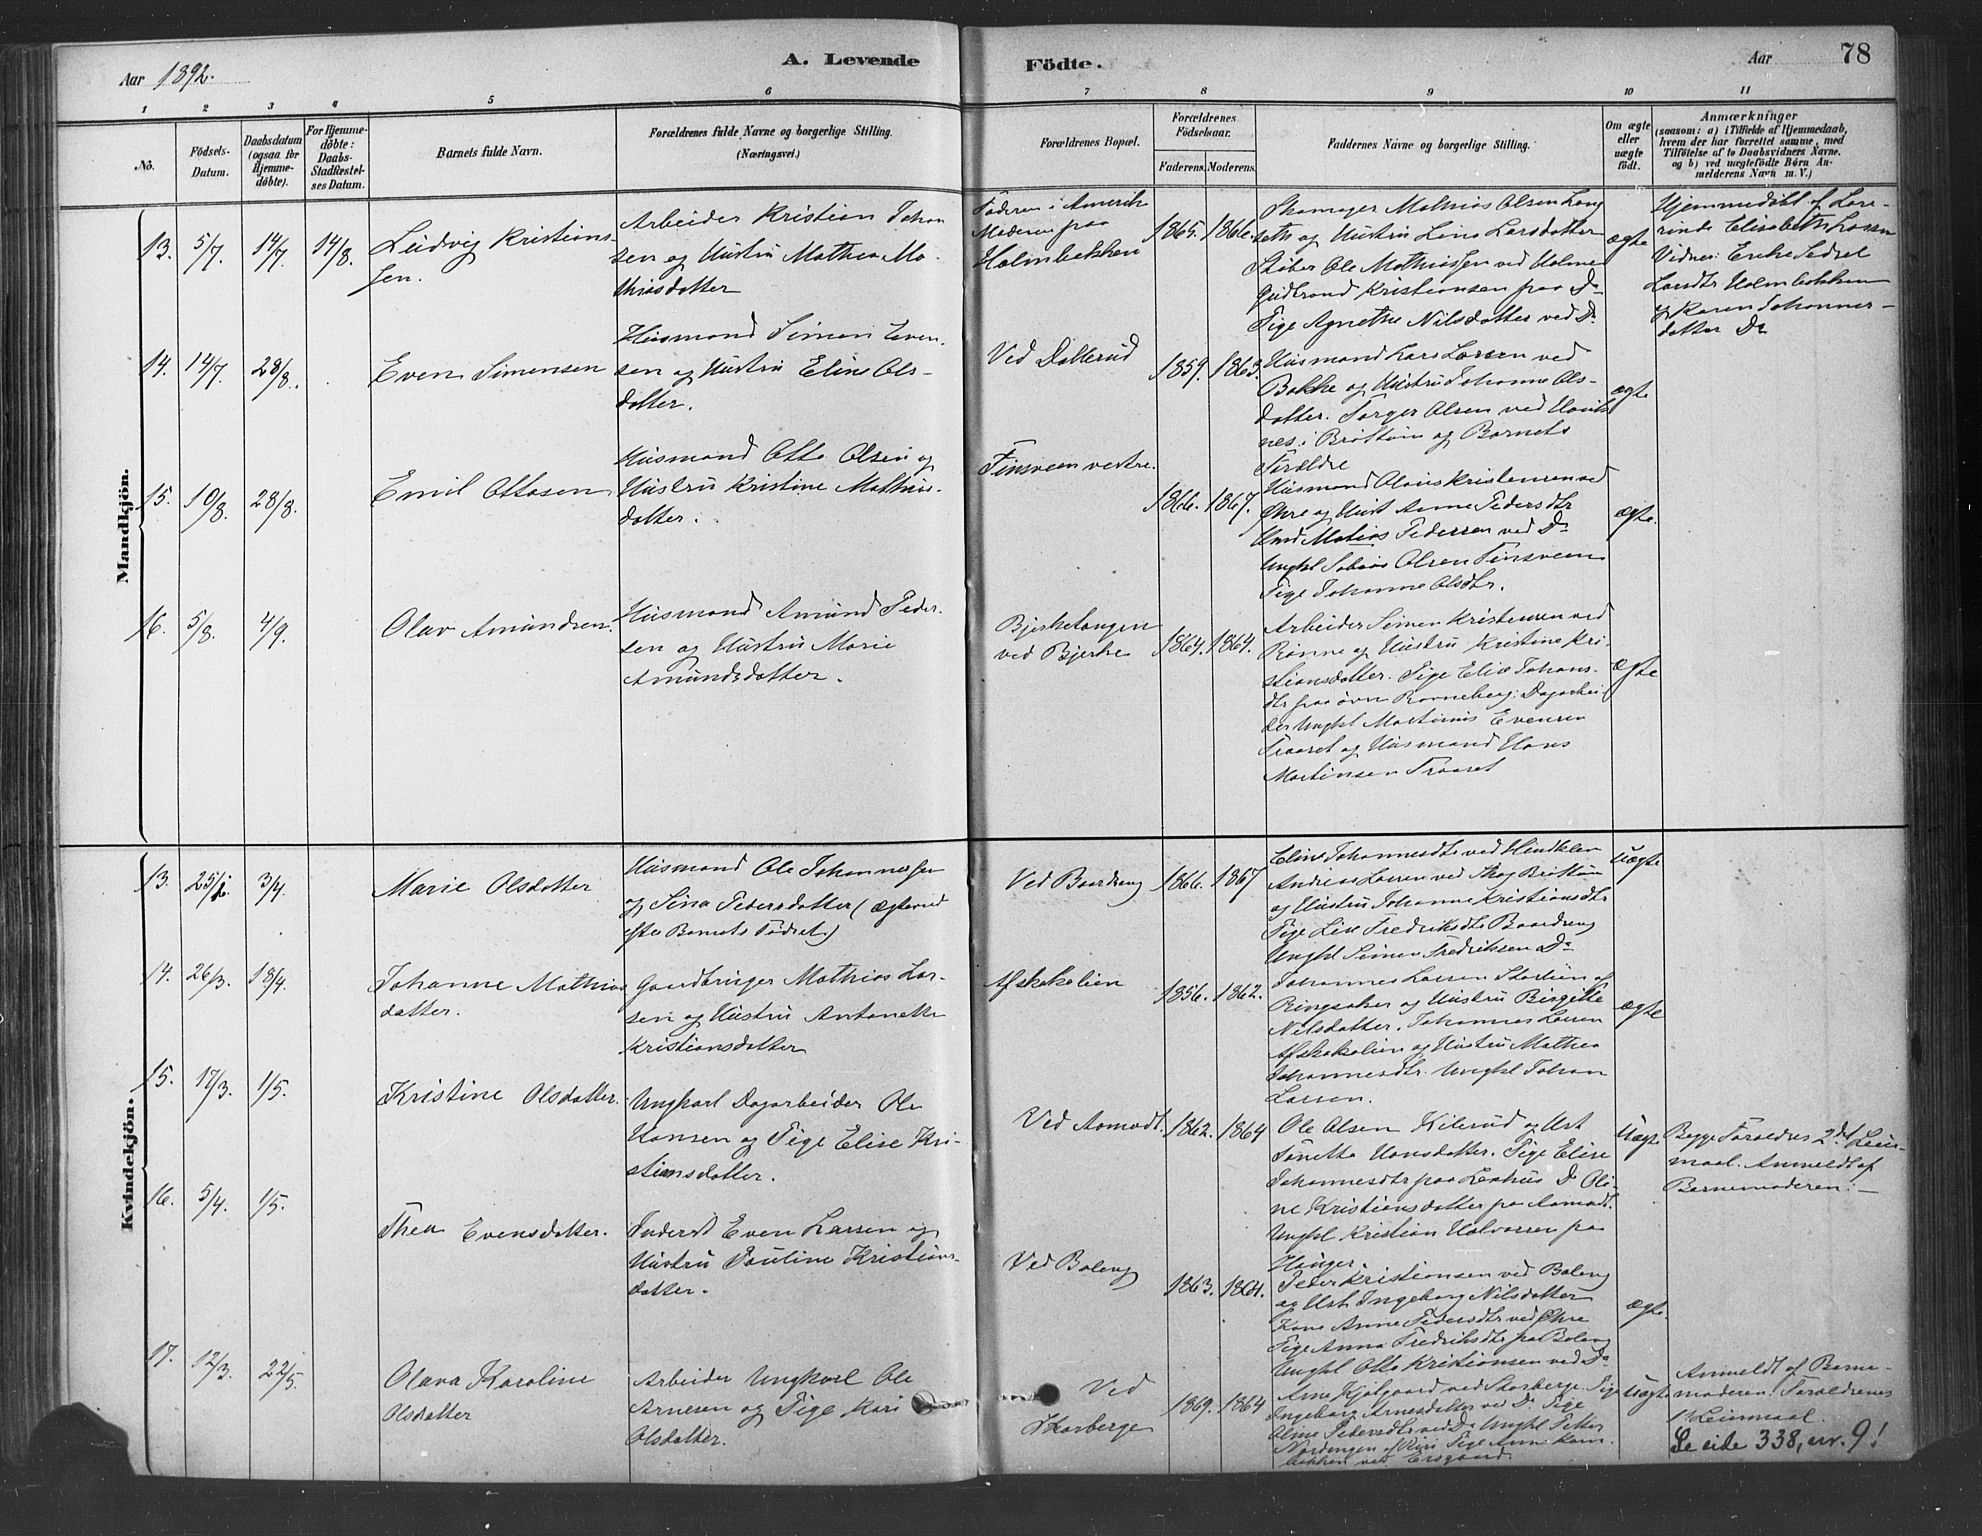 Aar 1892.
A. Levende
Födte.
Aar
78
1 2 3 4 5 6 7 8 9 10 11
No.
Födsels-
Datum.
Daabsdatum
(ogsaa for
Hjemme-
döbte).
For Hjemme-
döbte:
Daabs-
Stadfæstel-
ses Datum.
Barnets fulde Navn.
Forældrenes fulde Navne og borgerlige Stilling.
(Næringsvei.)
Forældrenes Bopæl.
Forældrenes
Födselsaar.
Faderens. Moderens.
Faddernes Navne og borgerlige Stilling.
Om ægte
eller
uægte
födt.
Anmærkninger
(saasom: a) i Tilfælde af Hjemmedaab,
hvem der har forrettet samme, med
Tilföielse af to Daabsvidners Navne,
og b) ved uægtefödte Börn An-
melderens Navn m. V.)
Mandkjön.
13. 5/7. 14/7. 14/8.
Ludvig Kristian-
sen.
Arbeider Kristian Johan
sen og Hustru Mathea Ma-
thiasdatter
Faderen i Amerik
Moderen paa
Holmbakken
1865. 1866.
Skomager Mathias Olsen Lang
seth og Hustru Lina Larsdatter
Støber Ole Mathiassen ved Holme
Gudbrand Kristiansen paa Do
Pige Agnethe Nilsdatter ved Do
ægte
Hjemmedöbt af Lære-
rinde Elisabeth Larsen
Vidner: Enke Sidsel
Larsdtr Holmbakken
og Karen Johannes-
datter Do
14. 14/7. 28/8.
Even Simensen
Husmand Simen Even-
sen og Hustru Eline Ols-
datter.
Ved Dallerud
1859. 1863.
Husmand Lars Larsen ved
Bakke og Hustru Johanne Ols-
datter. Torger Olsen ved
nes i Brøttum og Barnets
Forældre
ægte
15. 10/8. 28/8.
Emil Ottosen
Husmand Otto Olsen og
Hustru Kristine Mathias-
datter.
Finsveen vestre.
1866. 1867.
Husmand Olaus Kristensen ved
Øhre og Hust Anne Pedersdtr
Matias Pedersen ved Do
Ungkl Tobias Olsen Finsveen
Pige Johanne Olsdtr.
ægte.
16. 5/8. 4/9.
Olav Amundsen.
Husmand Amund Peder-
sen og Hustru Marie
Amundsdatter.
Bjerketangen
ved Bjerke
1864. 1864.
Arbeider Simen Kristensen ved
Rønne og Hustru Kristine Kri-
stiansdatter. Pige Elise Johans-
dtr paa øvre Ravneberg. Dagarbei-
der Ungkl Martinius Evensen
Traaset og Husmand Hans
Martinsen Traaset
ægte
Kvindekjön.
13. 3/4.
Marie Olsdatter
Husmand Ole Johannessen
og Lina Pedersdatter (ægteviet
efter Barnets Födsel)
Ved Baardseng
1866. 1867
Eline Johannesdtr ved Hindklev
Andreas Larsen ved Skog Brøttum
og Hustru Johanne Kristiansdtr
Pige Lise Fredriksdtr Baardseng
Ungkl Simen Fredriksen Do
Uægte
14. 26/3. 18/4.
Johanne Mathias
datter.
Gaardbruger Mathias Lar-
sen og Hustru Antonette
Kristiansdatter
Afskakalien
1856. 1862.
Johannes Larsen Storlien af
Ringsaker og Hustru Birgitte
Nilsdatter. Johannes Larsen
Afskakalien og Hustru Mathea
Johannesdtr. Ungkl Johan
Larsen.
ægte
15. 17/3. 1/5.
Kristine Olsdatter.
Ungkarl Dagarbeider Ole
Hansen og Pige Elise Kri-
stiansdatter.
Ved Aamodt.
1862. 1864
Ole Olsen Kilerud og Hst
Tonetta Hansdatter. Pige Elise
Johannesdtr paa Lenhus Do Oli-
ne Kristiansdatter paa Aamodt.
Ungkl Kristian Halvorsen paa
Hanger.
Uægte
Begge Foreldres 2det Leier-
maal. Anmeldt af
Barnemoderen. —
16. 5/4. 1/5.
Thea Evensdatter.
Inderst Even Larsen og
Hustru Pauline Kristians-
datter.
Ved Baleng
1863. 1864.
Peder Kristiansen ved Baleng
og Hst. Ingeborg Nilsdatter
Kone Anne Pedersdtr ved Øhre
Pige Anna Fredriksdtr paa Baleng
Ungkl Otto Kristiansen ved Do
ægte.
17. 12/3. 22/5.
Olava Karoline
Olsdatter
Arbeider Ungkarl Ole
Arnesen og Pige Kari
Olsdatter.
Ved
Skarberge
1869. 1864
Arne Kjølgaard ved Skarberge. Pige
Ingeborg Arnesdatter ved Do Pige
Oline Pedersdtr ved Do Ungkl Petter
Nordengen af Ringsaker Pige Anne Kam-
bakken ved Ersgaard.
Uægte
Anmeldt af Barne-
moderen. Foreldrenes
1ste Leiermaal.
Se side 338, nr. 9!